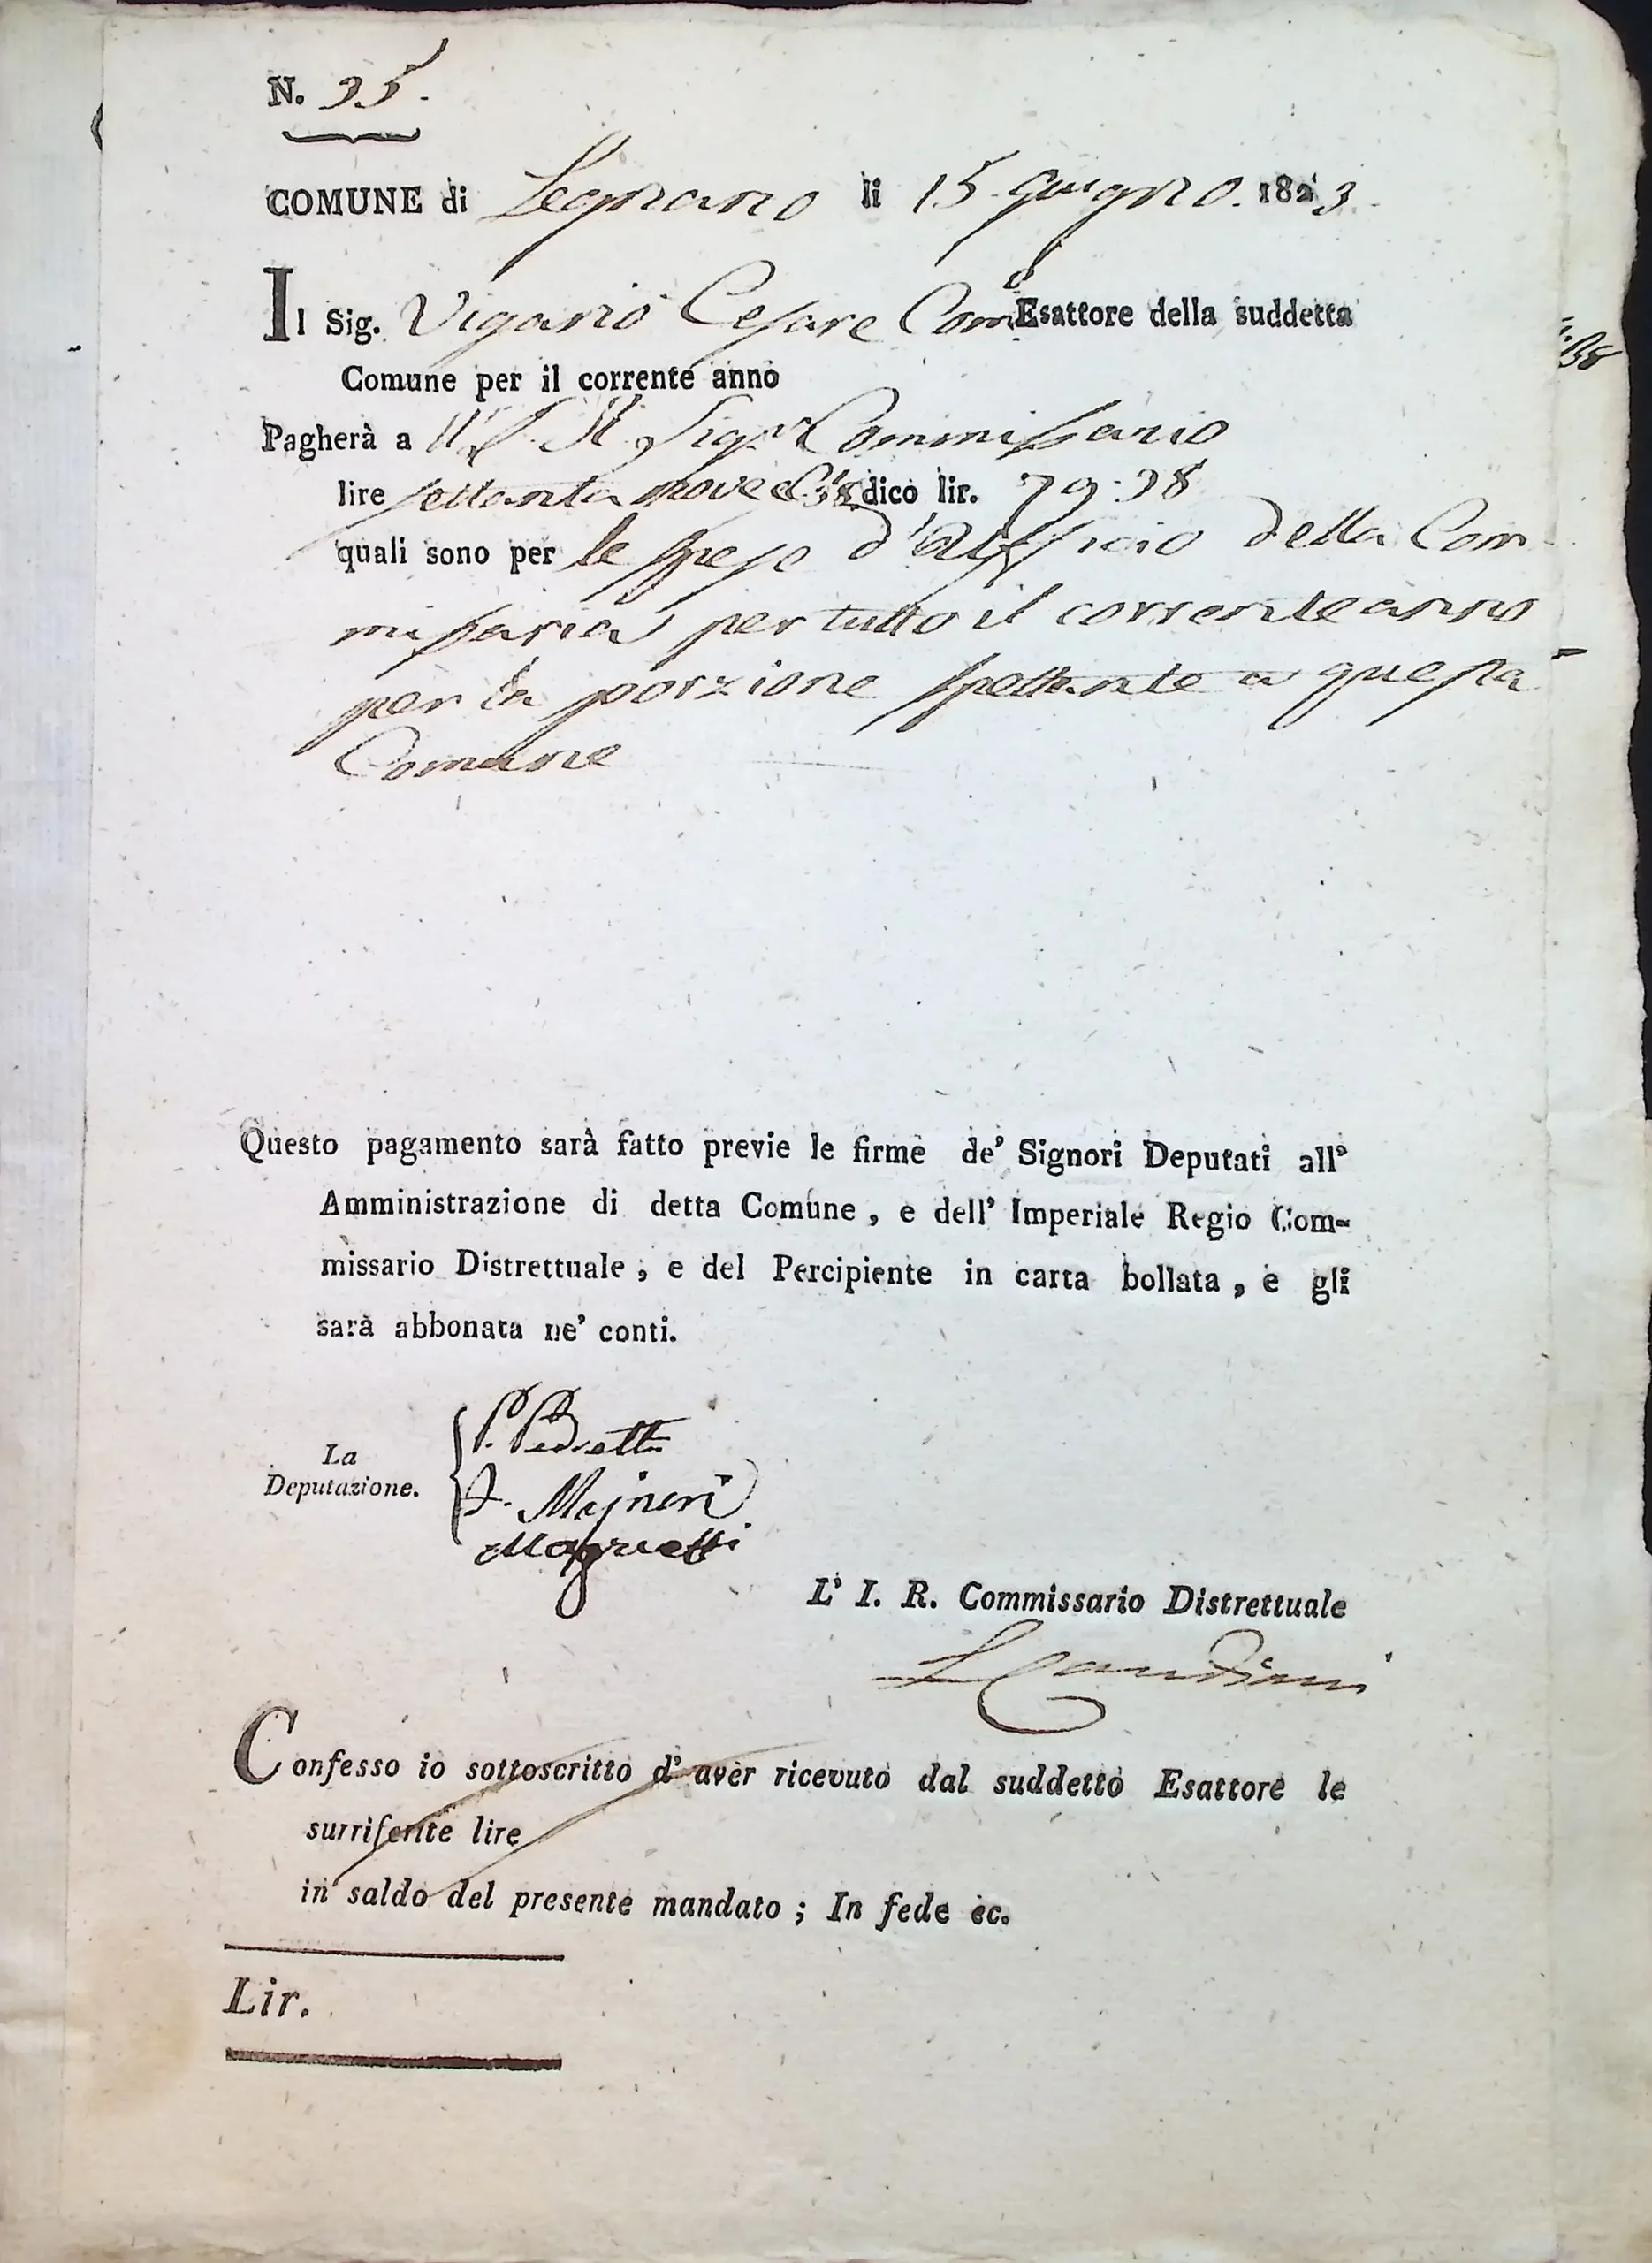 N. 35.
COMUNE di Legnano li 15 giugno. 1823.
Il Sig. Viganò Cesare Com.e Esattore della suddetta
Comune per il corrente anno
Pagherà a Sig.r Commissario
lire settanta nove C. 38 dico lir. 79:38
quali sono per le spese d'Ufficio della Com
missaria per tutto il corrente anno
per la porzione spettante a questa
Comune
Questo pagamento sarà fatto previe le firme de' Signori Deputati all'
Amministrazione di detta Comune, e dell' Imperiale Regio Com-
missario Distrettuale, e del Percipiente in carta bollata, e gli
sarà abbonata ne' conti.
La
Deputazione.
Majneri
L' I. R. Commissario Distrettuale
Confesso io sottoscritto d' aver ricevuto dal suddetto Esattore le
surriferite lire
in saldo del presente mandato; In fede ec.
Lir.